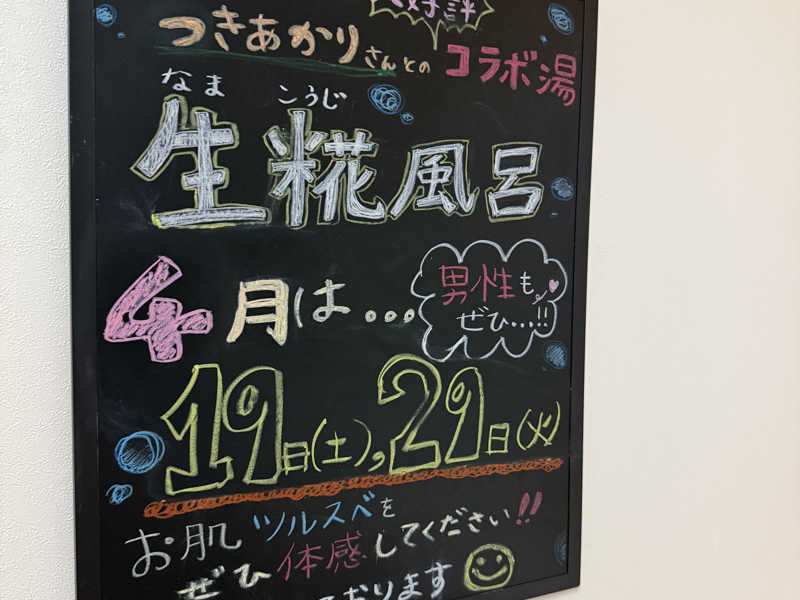 好評
つきあかりさんとのコラボ湯
なま こうじ
生糀風呂
4月は...
男性も
ぜひ...!!
19日(土),29日(火)
お肌ツルスベを
体感してください!!
ぜひ おります